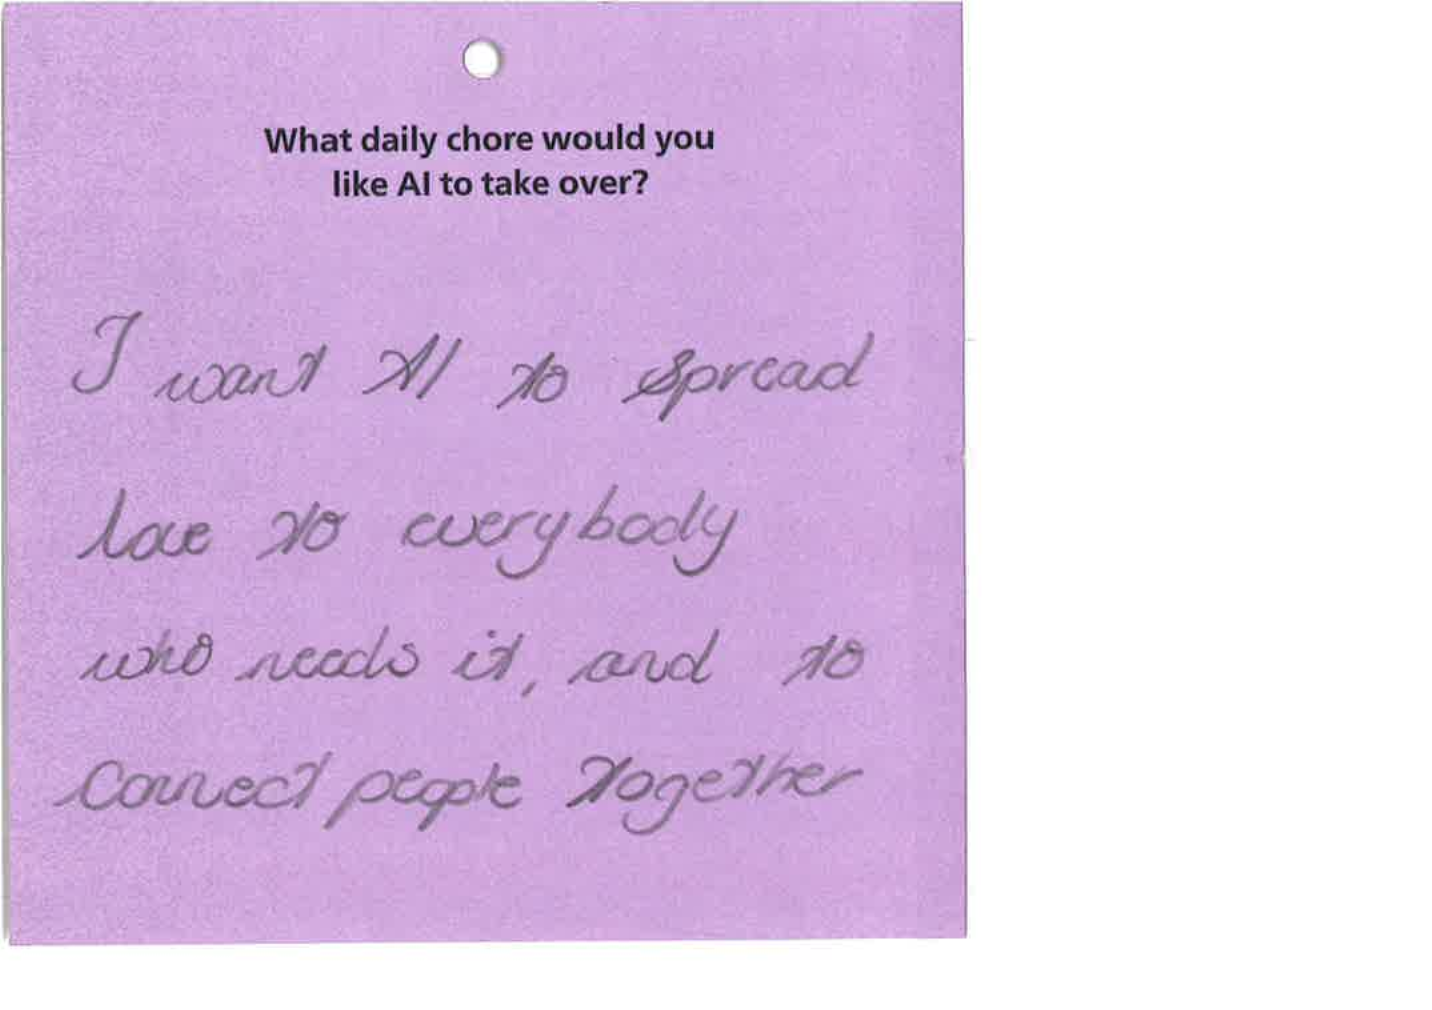 What daily chore would you
like AI to take over?
I want AI to spread
love to everybody
who needs it, and to
connect people together